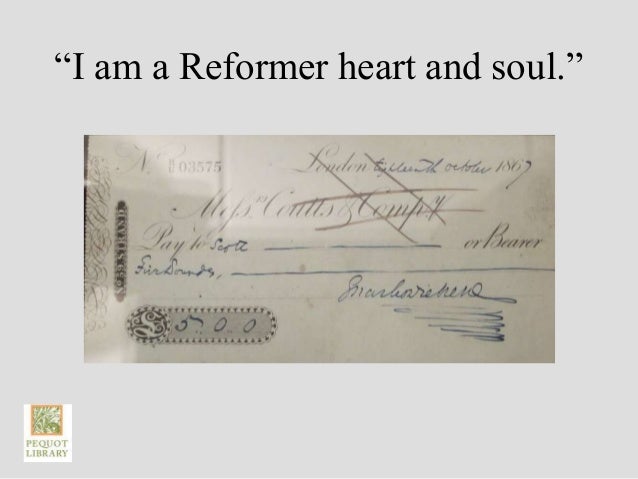 “I am a Reformer heart and soul.”
No 03575 London Eighteenth October 1867
Messrs. Coutts & Compy.
Pay to Scott or Bearer
Five Pounds,
No 59 STRAND
Charles Dickens
£ 5..0..0
PEQUOT
LIBRARY